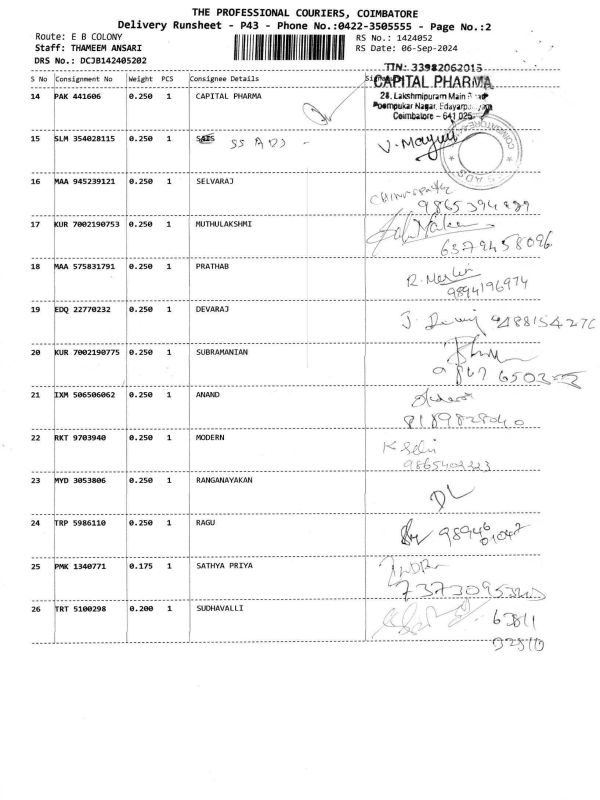 THE PROFESSIONAL COURIERS, COIMBATORE
Delivery Runsheet - P43 - Phone No.:0422-3505555 - Page No.:2
Route: E B COLONY
RS No.: 1424052
Staff: THAMEEM ANSARI
RS Date: 06-Sep-2024
DRS No.: DCJB142405202
TIN: 33982062015
S No Consignment No Weight PCS Consignee Details
CAPITAL PHARMA
28, Lakshmipuram Main Road
Poompukar Nagar, Edayarpalayam
Coimbatore - 641 025
14 PAK 441606 0.250 1 CAPITAL PHARMA
15 SLM 354028115 0.250 1 SS ADS - V. Mayuri
16 MAA 945239121 0.250 1 SELVARAJ
9865394889
17 KUR 7002190753 0.250 1 MUTHULAKSHMI
6379458096
18 MAA 575831791 0.250 1 PRATHAB
9894196974
19 EDQ 22770232 0.250 1 DEVARAJ
20 KUR 7002190775 0.250 1 SUBRAMANIAN
21 IXM 506506062 0.250 1 ANAND
8189828040
22 RKT 9703940 0.250 1 MODERN K Selvi
9865402223
23 MYD 3053806 0.250 1 RANGANAYAKAN DL
24 TRP 5986110 0.250 1 RAGU
25 PMK 1340771 0.175 1 SATHYA PRIYA
26 TRT 5100298 0.200 1 SUDHAVALLI